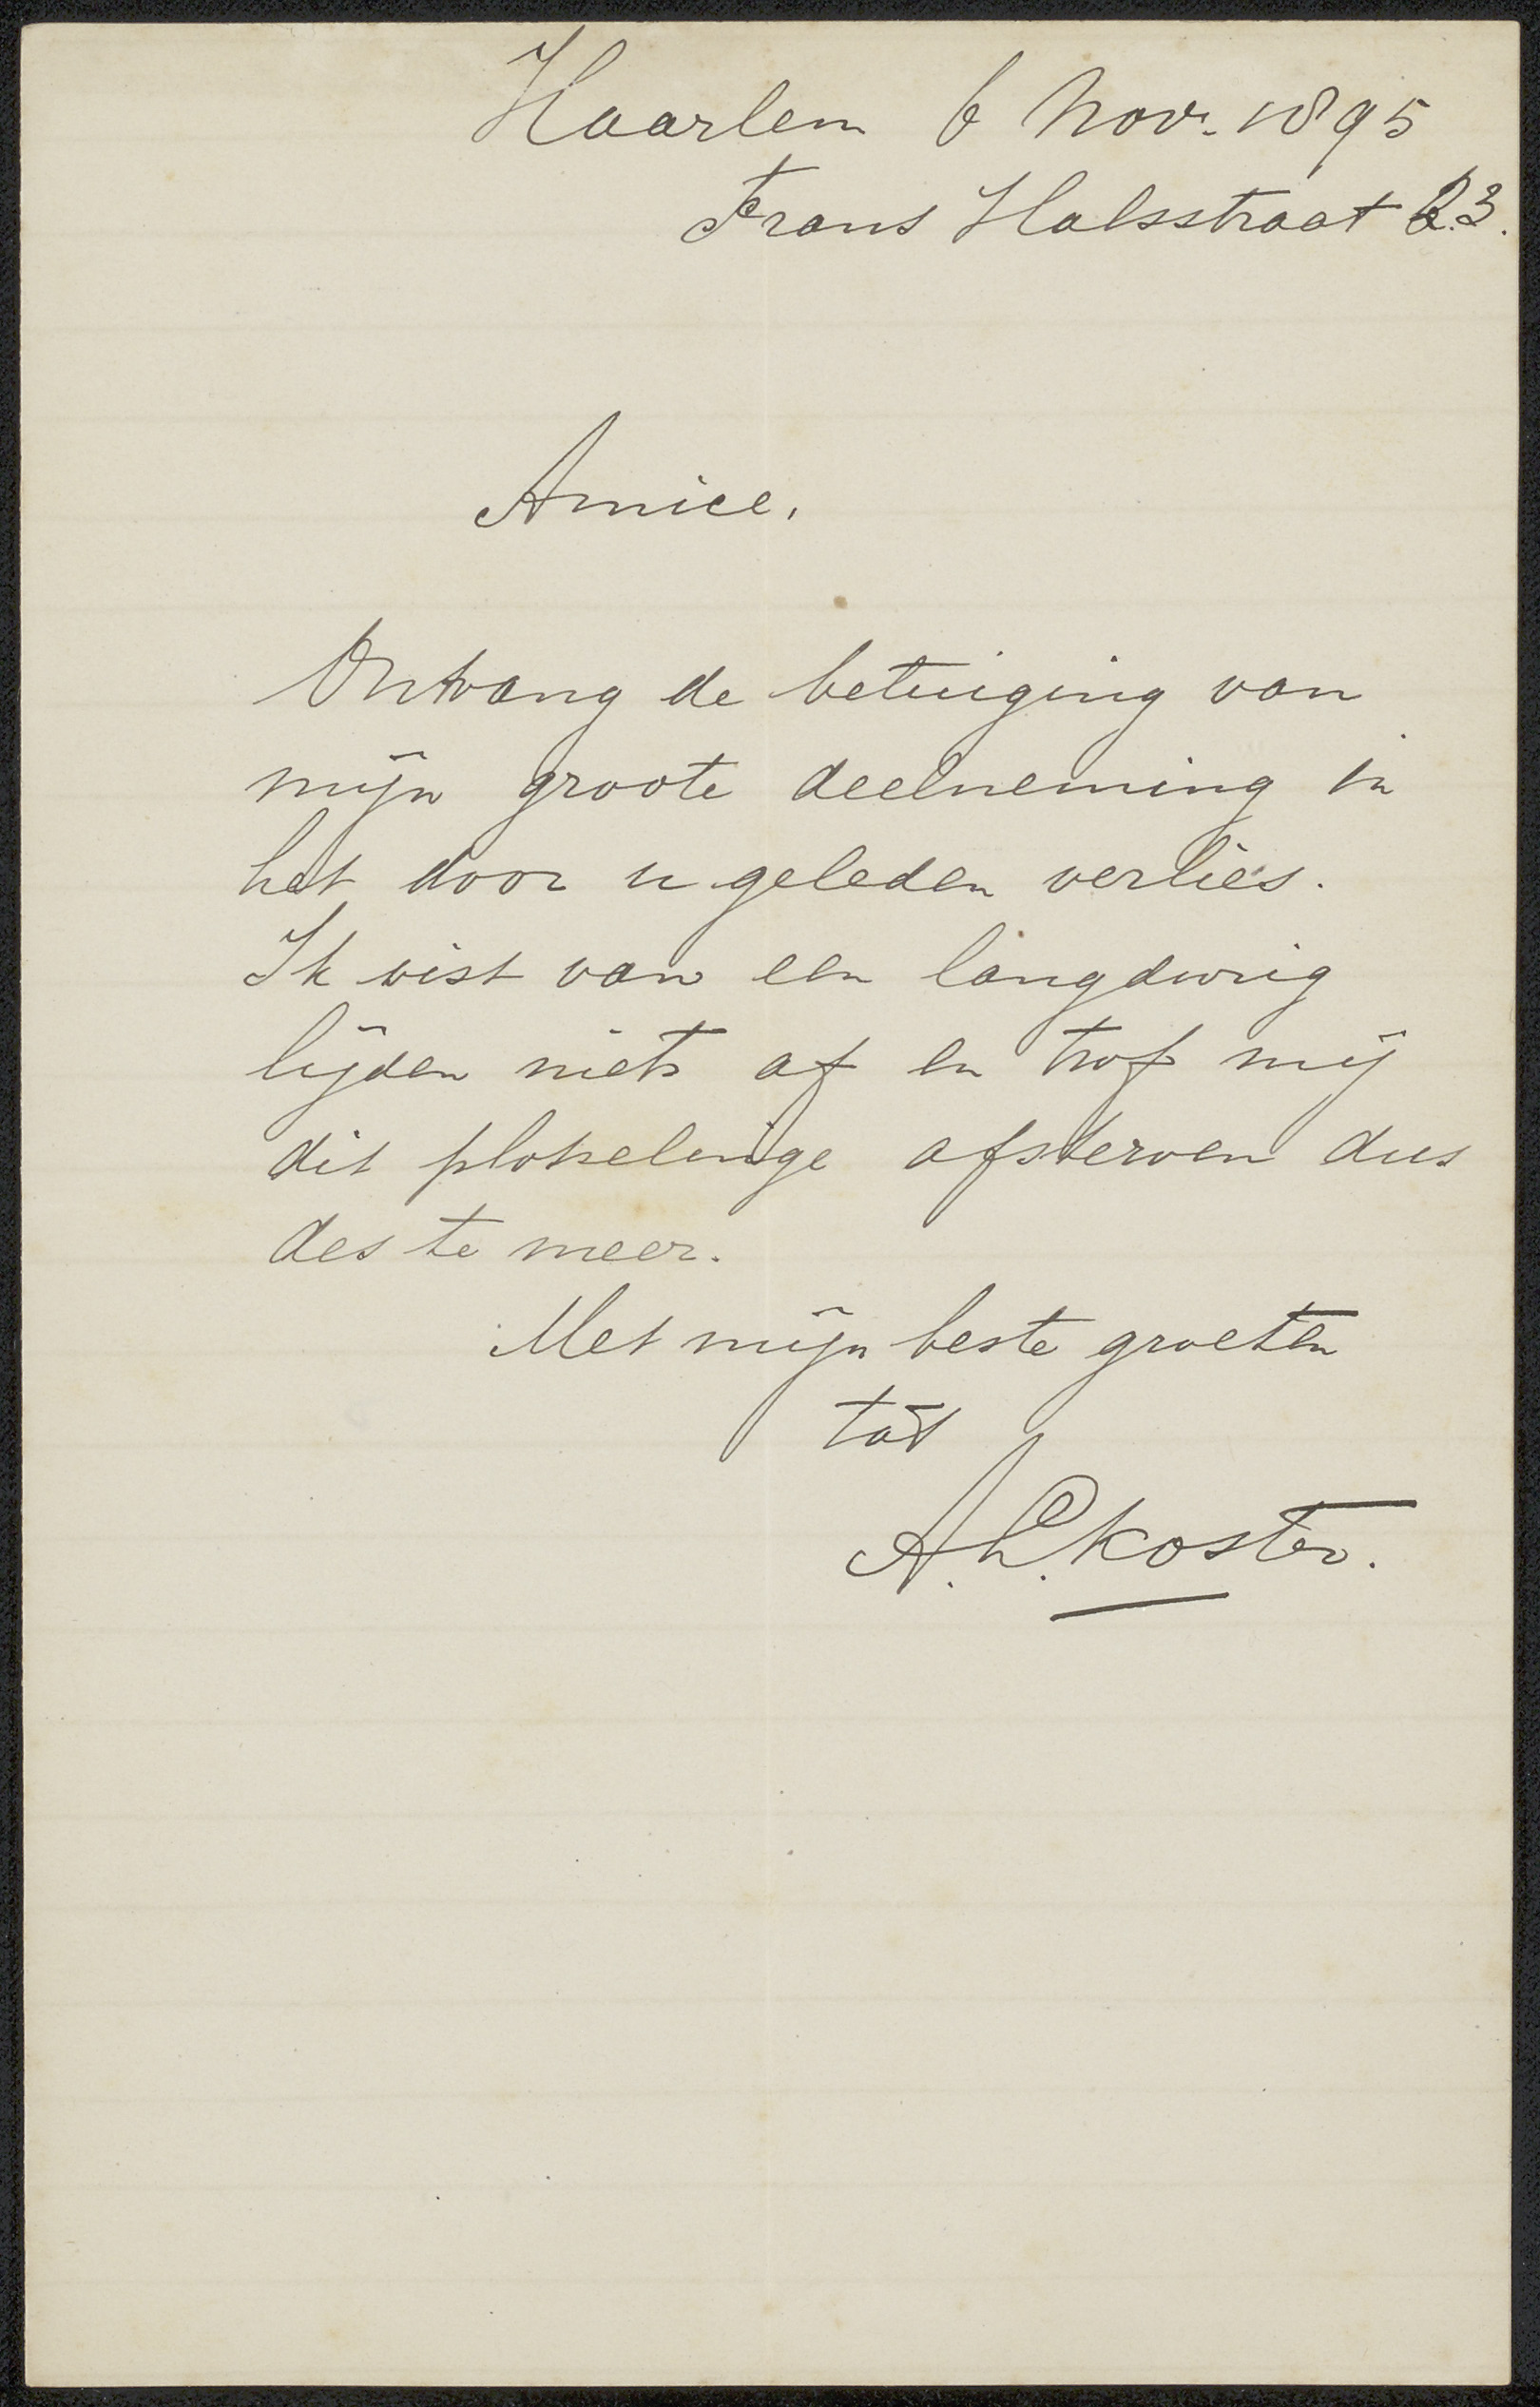 Haarlem 6 Nov. 1895
Frans Halsstraat 23.
Amice,
Ontvang de betuiging van
mijn groote deelneming in
het door u geleden verlies.
Ik wist van een langdurig
lijden niets af en trof mij
dit plotselinge afsterven dus
des te meer.
Met mijn beste groeten
tàt
A. L. Koster.